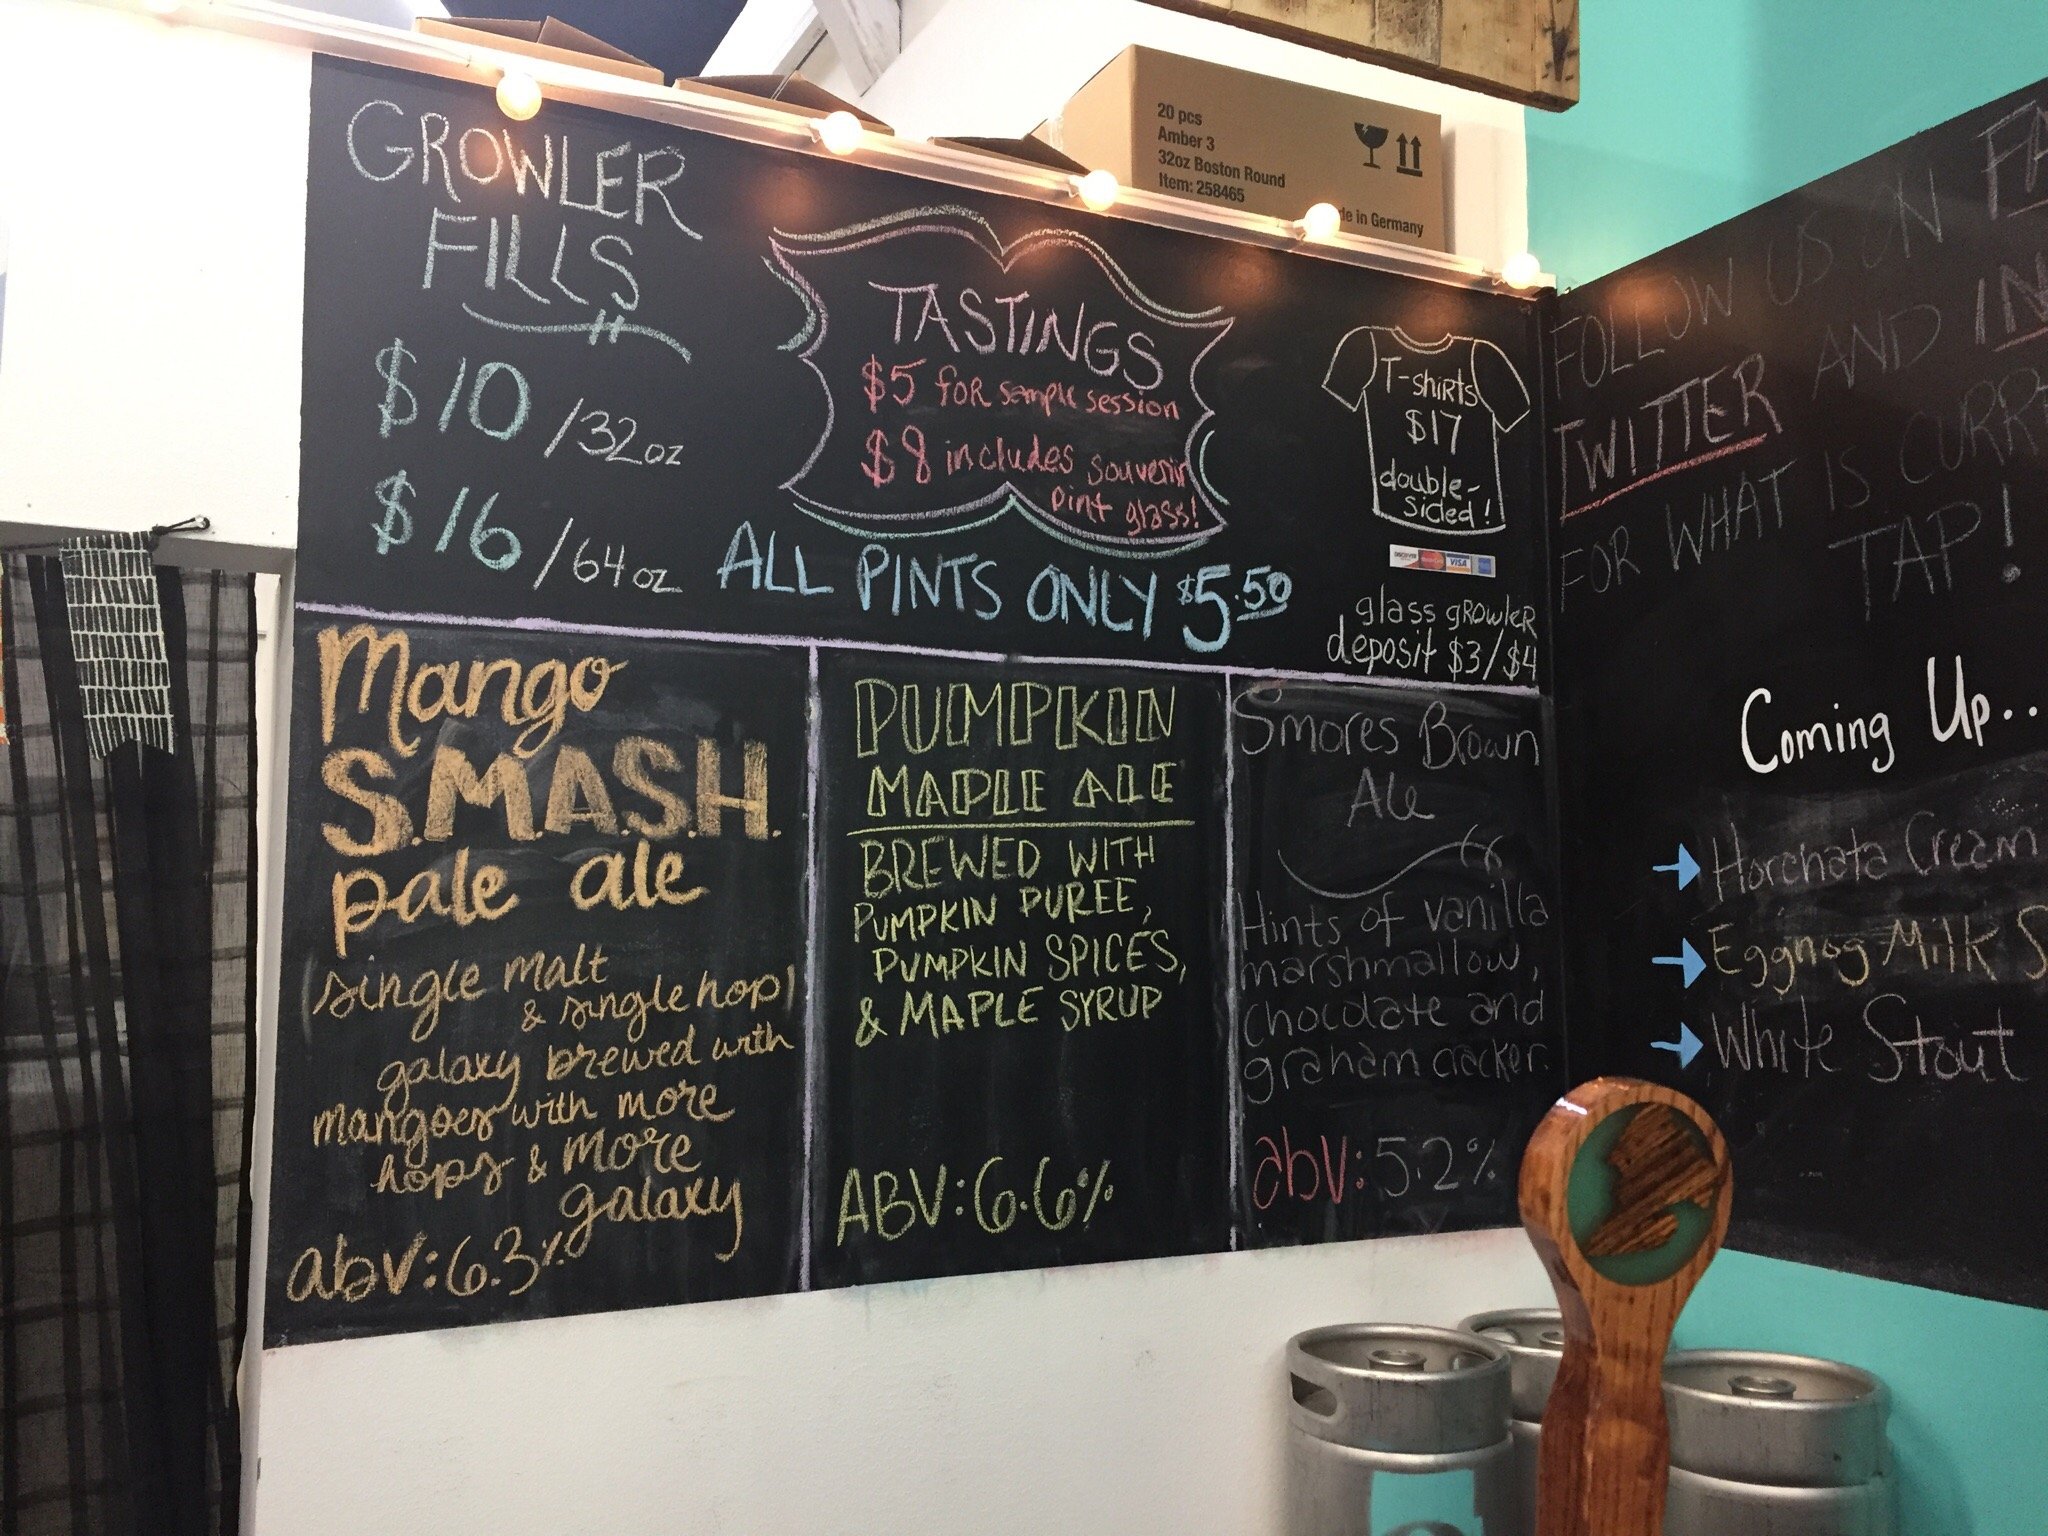 20 pcs
Amber 3
32oz Boston Round
Item: 258465
de in Germany
GROWLER
FILLS
$10 /32oz
$16 /64oz
TASTINGS
$5 FOR sample session
$8 includes souvenir
pint glass!
ALL PINTS ONLY $5.50
T-shirts
$17
double-
sided!
DISCOVER
VISA
glass growler
deposit $3/$4
Mango
S.M.A.S.H.
pale ale
(single malt
& single hop)
galaxy brewed with
mangoes with more
hops & more
galaxy
abv: 6.3%
PUMPKIN
MAPLE ALE
BREWED WITH
PUMPKIN PUREE,
PUMPKIN SPICES,
& MAPLE SYRUP
ABV: 6.6%
S'mores Brown
Ale
Hints of vanilla
marshmallow,
chocolate and
graham cracker.
abv: 5.2%
FOLLOW US ON FA
TWITTER AND IN
FOR WHAT IS CURR
TAP!
Coming Up..
Horchata Cream
Eggnog Milk S
White Stout